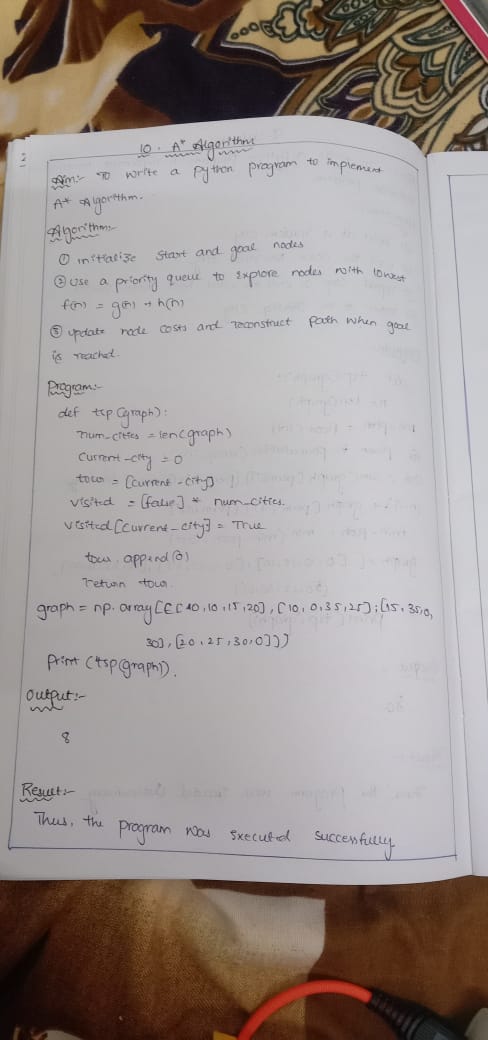 10. A* Algorithm
Aim:- To write a python program to implement
A* Algorithm.
Algorithm:-
① initialize start and goal nodes
② use a priority queue to explore nodes with lowest
f(n) = g(n) + h(n)
③ update node costs and reconstruct path when goal
is reached.
Program:-
def tsp (graph):
num_cities = len(graph)
current_city = 0
tour = [current_city]
visited = [false] * num_cities.
visited [current_city] = True
tour. append(0)
return tour.
graph = np. array [[[10, 10, 15, 20], [10, 0, 35, 25], [15, 35, 0,
30], [20, 25, 30, 0]]]
Print (tsp(graph)).
Output:-
8
Result:-
Thus, the program was executed successfully